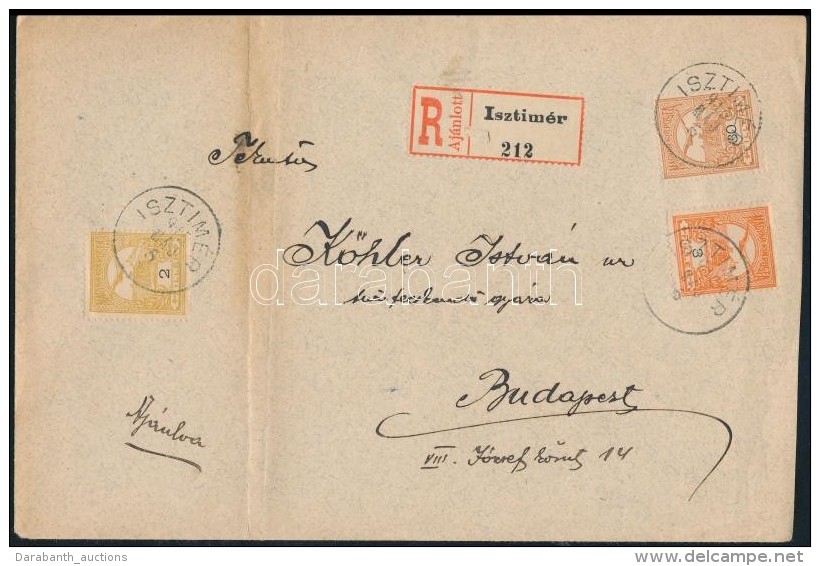 R
Ajánlott
Isztimér
212
ISZTIMÉR
60
ISZTIMÉR
2
3
Tekintetes
Köhler István ur
gyára
Budapest
VIII. József körút 14
Ajánlva
darabanth
Darabanth_auctions
© delcampe.net